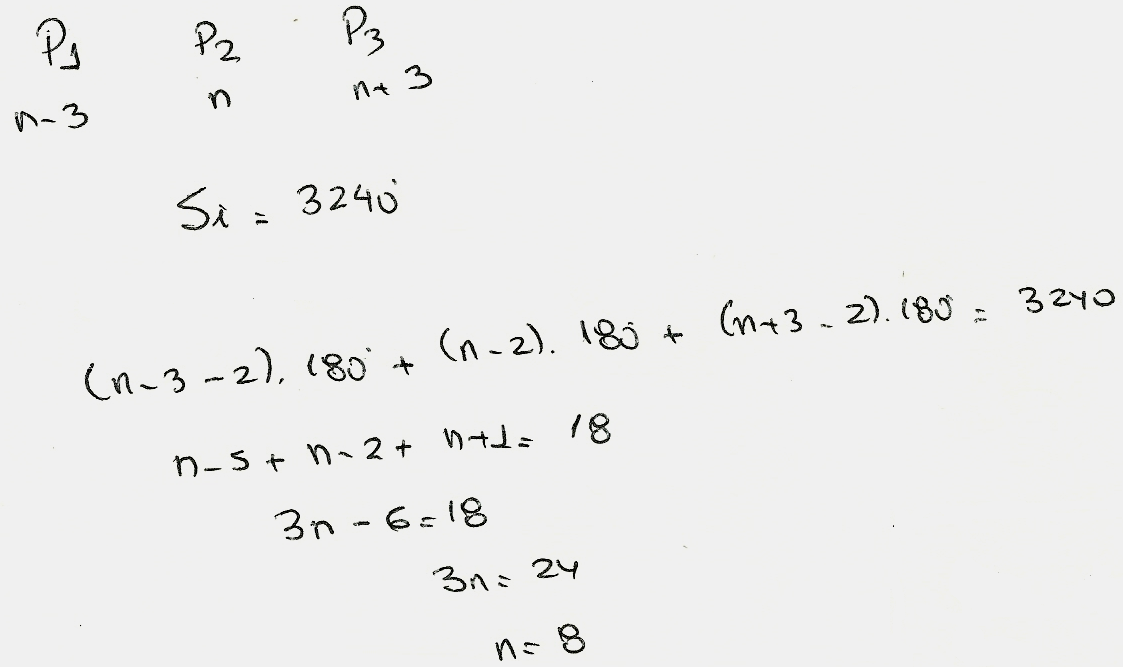 P1 P2 P3
n-3 n n+3
Si = 3240°
(n-3-2).180° + (n-2).180° + (n+3-2).180° = 3240
n-5+n-2+n+1=18
3n-6=18
3n=24
n=8